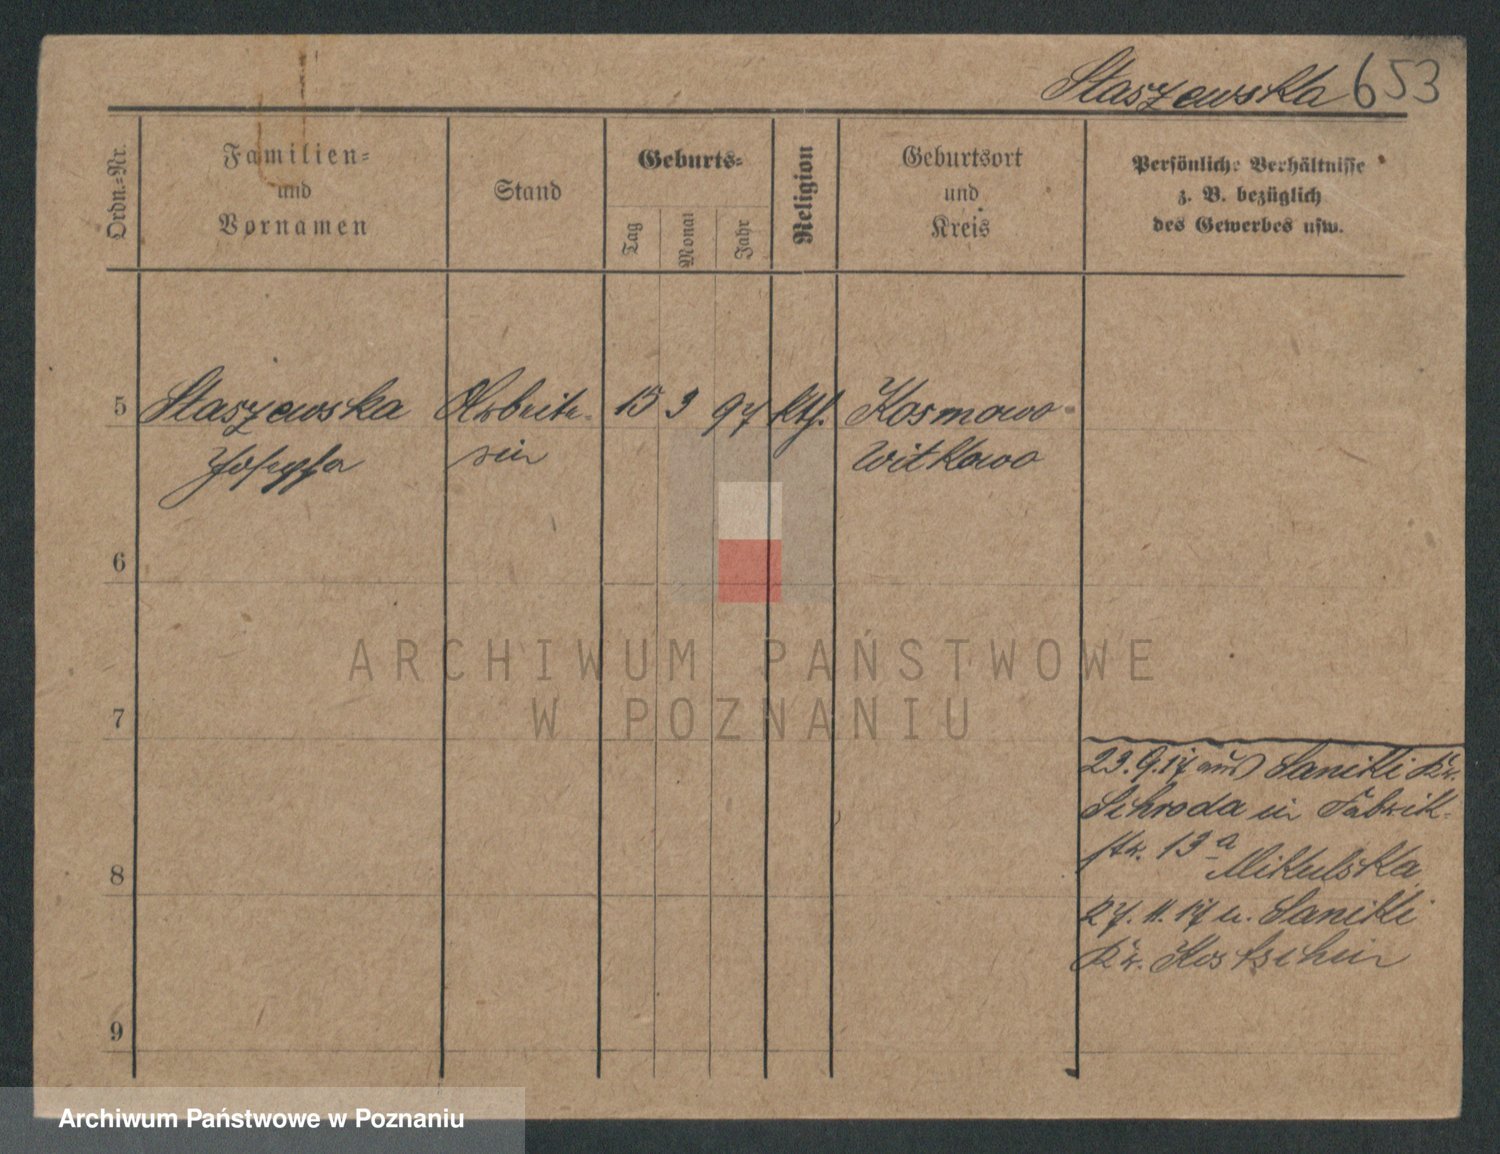 Staszewska 653
Ordn.=Nr.
Familien=
und
Vornamen
Stand
Geburts=
Tag
Monat
Jahr
Religion
Geburtsort
und
Kreis
Persönliche Verhältnisse
z. B. bezüglich
des Gewerbes usw.
5 Staszewska Arbeite- 15 3 97 kth. Kosmowo-
Josepfa rin Witkowo
6
7
8
9
23.9.17 aus Sanikki Kr.
Schroda in Fabrik-
str. 13a Mikulska
27.11.17 n. Sanikki
Kr. Kostschin
ARCHIWUM PAŃSTWOWE
W POZNANIU
Archiwum Państwowe w Poznaniu